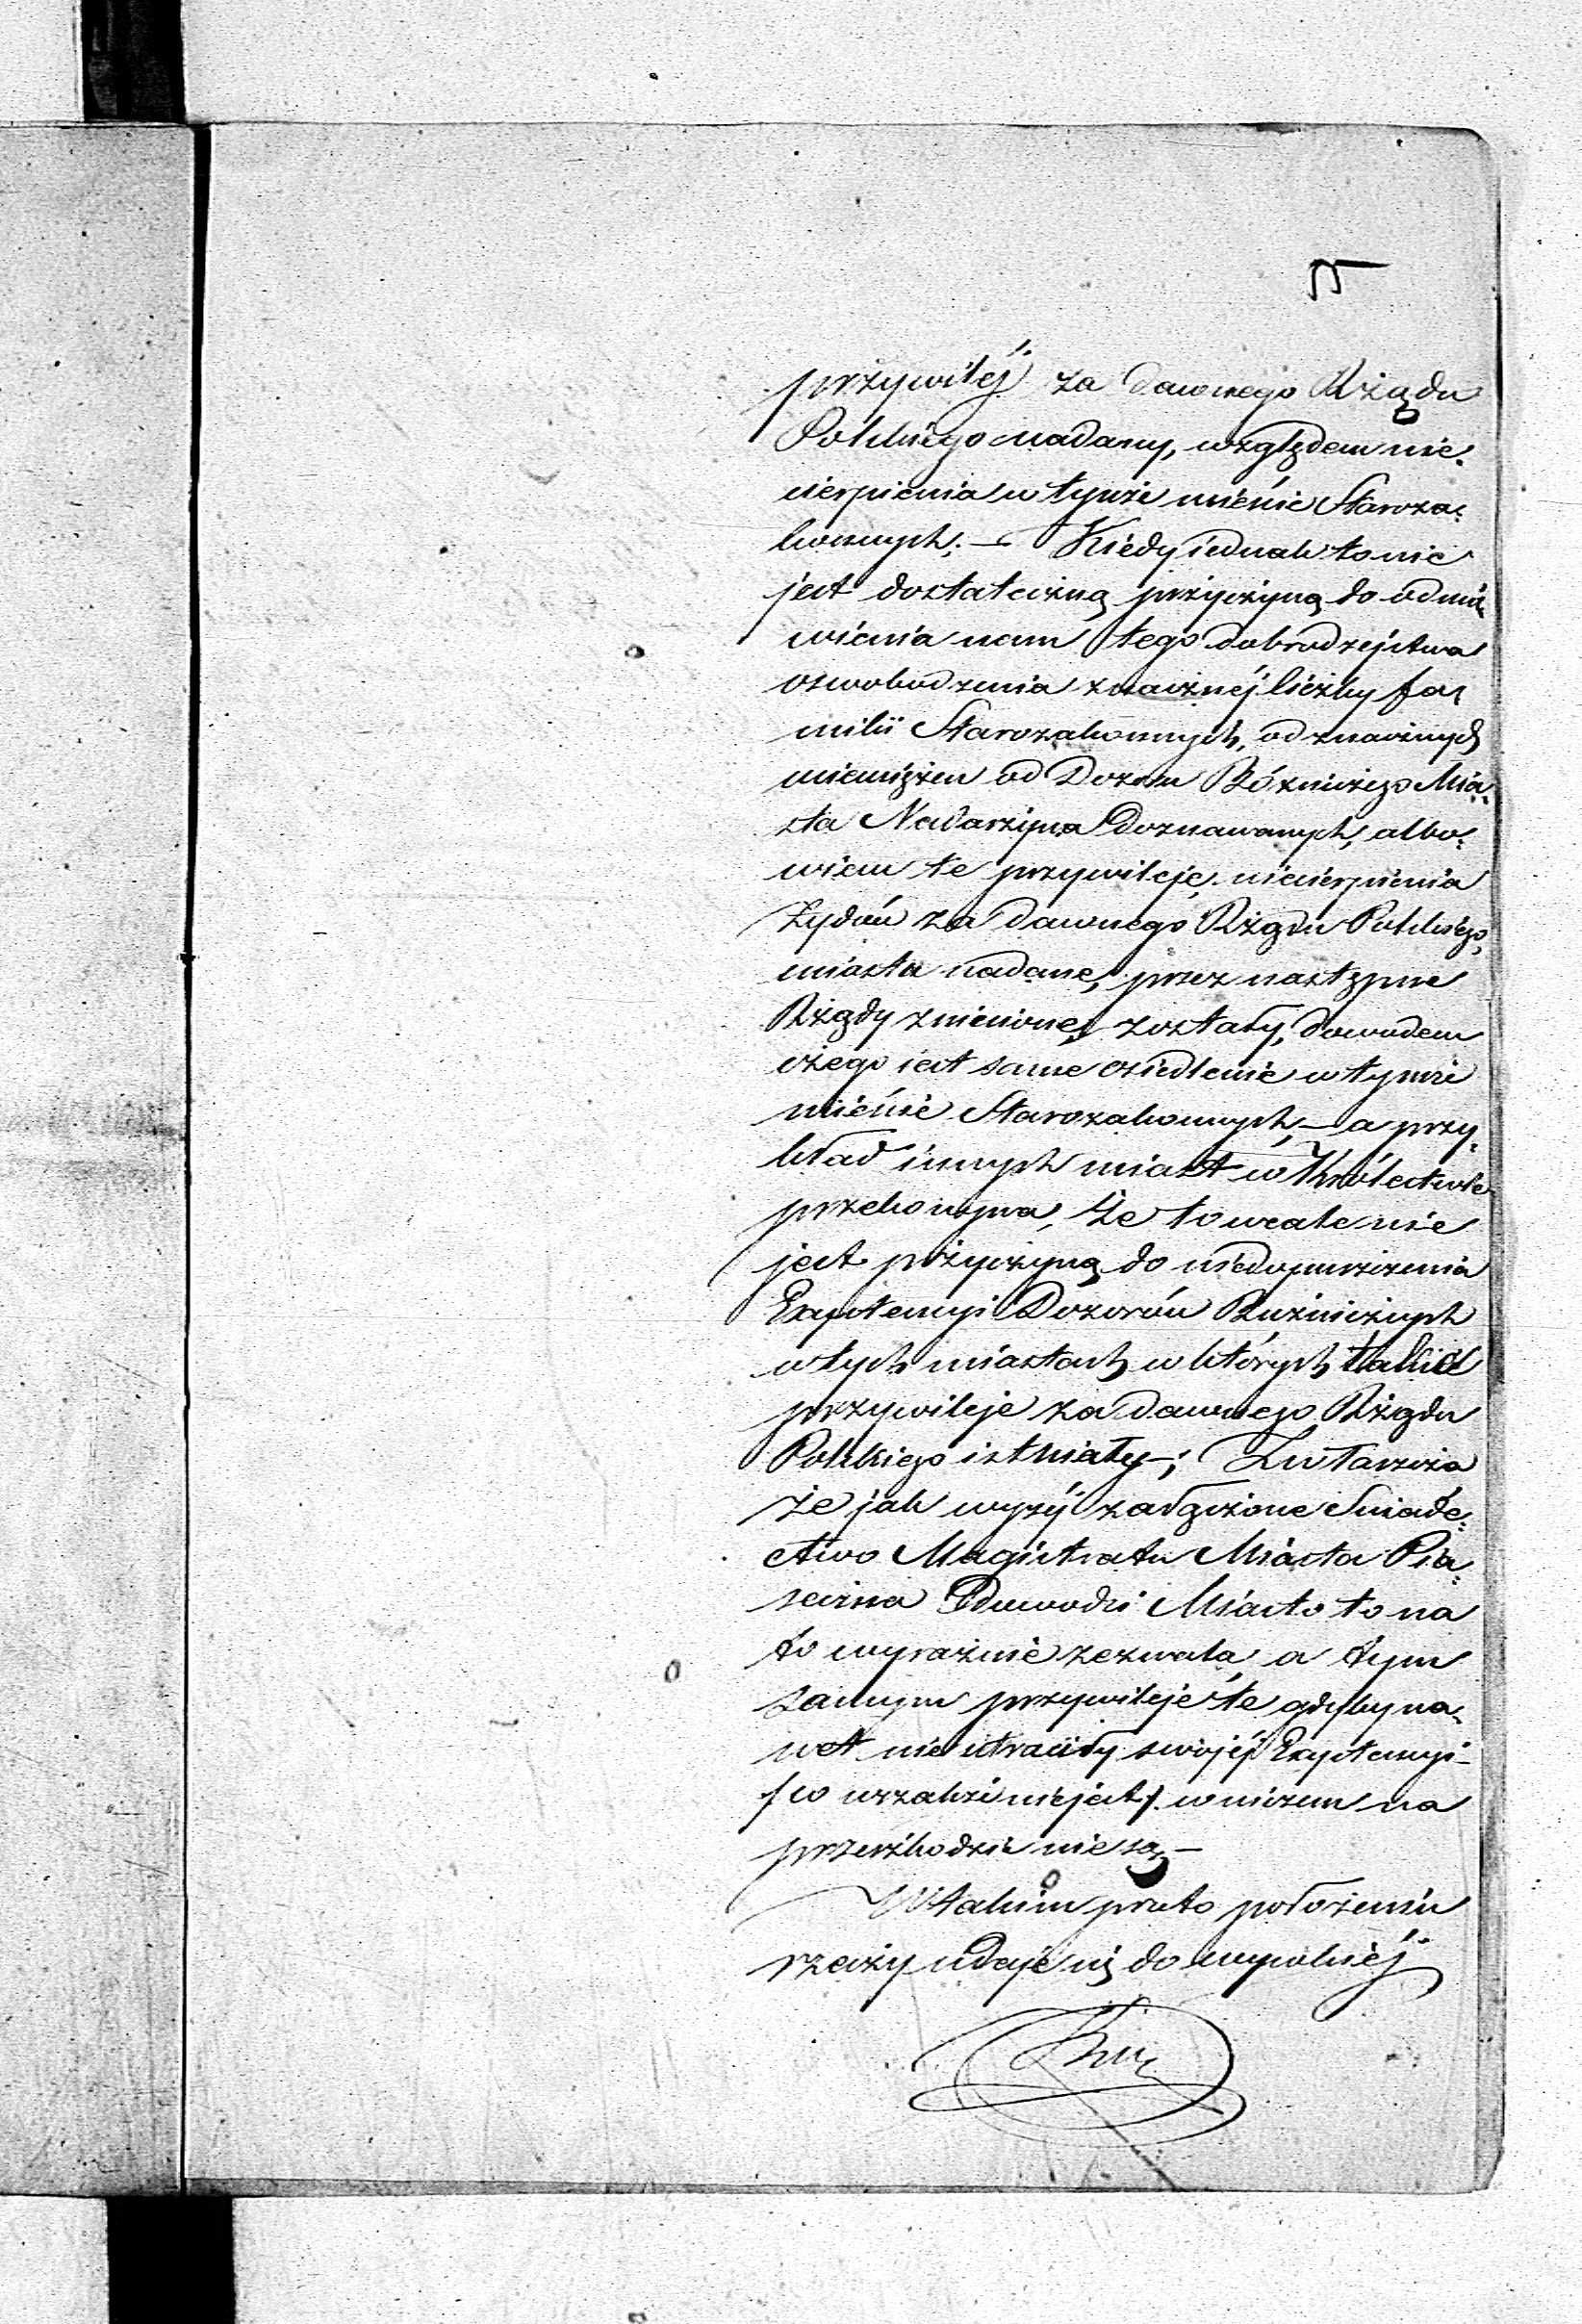 55
przywiléj za dawnego Rżądu
Polskiego nadany, względem nie-
cierpienia w tymże mieście Staroza-
konnych; — Kiedy iednak to nie
jest dostateczną przyczyną do odmó-
wienia nam tego dobrodzejstwa
oswobodzenia znacznéj liczby fa-
milii Starozakonnych, od znacznych
od Dozoru Bóżniczego Mia-
sta Nadarzyna Doznawanych, albo-
wiem te przywileje niecierpienia
Żydów za dawnego Rżądu Polskiego,
miasta nadane, przez następne
Rżądy zniesione zostały, dowodem
czego iest same osiedlenie w tymże
mieście Starozakonnych, — a przy-
kład innych miast w Królestwie
przekonywa, że to wcale nie
jest przyczyną do niedopuszczenia
Exystencyi Dozorów Bużniczych
w tych miastach w których takie
przywileje za dawnego Rżądu
Polskiego istniały —; Zwłaszcza
że jak wyżéj załączone Swiade-
ctwo Magistratu Miasta Pia-
seczna Dowodzi Miasto to na
to wyraźnie zezwala, a tym
samym przywileje te gdyby na-
wet nie utraciły swojéj Exystencyi
/: co wszakże nie jest :/ w niczem na
przeszkodzie nie są —
W takim przeto położeniu
rzeczy udaje się do wysokiéj